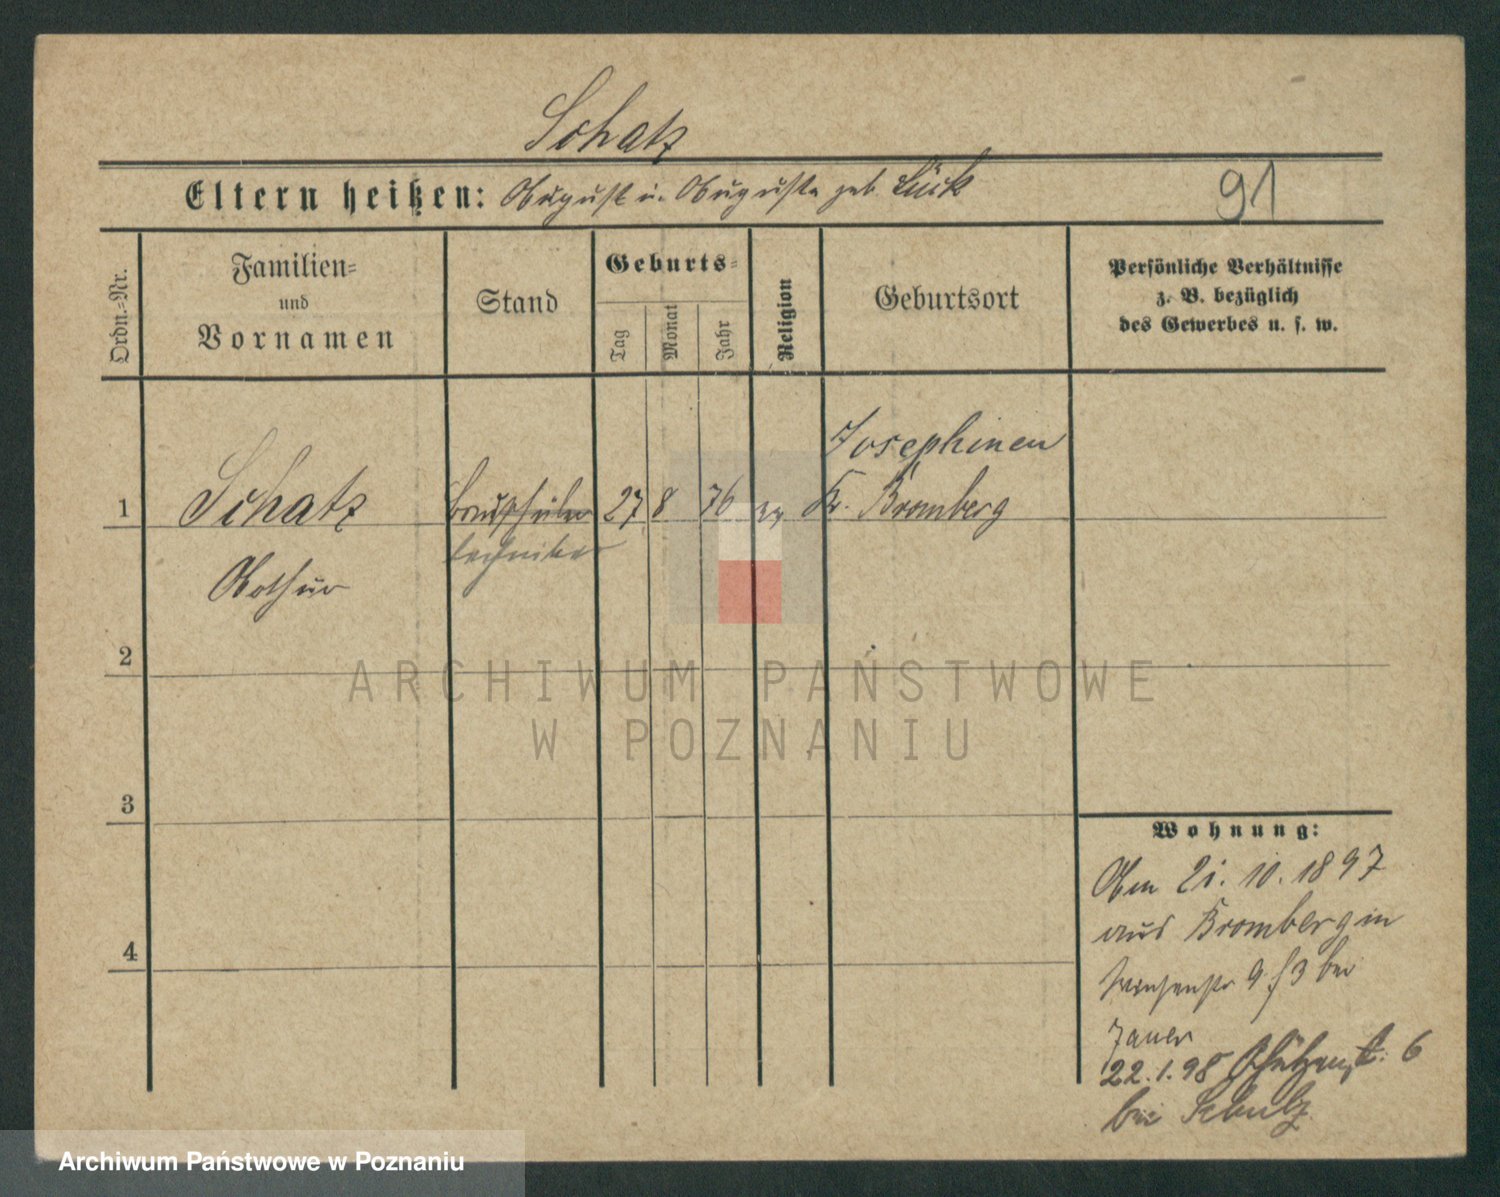 Schatz
Eltern heißen: August u. Auguste geb. Lück
91
Ordn.-Nr.
Familien-
und
Vornamen
Stand
Geburts-
Tag
Monat
Jahr
Religion
Geburtsort
Persönliche Verhältnisse
z. B. bezüglich
des Gewerbes u. s. w.
Josephinen
1 Schatz Bauschüler 27 8 76 ev Kr. Bromberg
techniker
Arthur
2
ARCHIWUM PAŃSTWOWE
W POZNANIU
3
4
Wohnung:
Am 21. 10. 1897
aus Bromberg in
9 f 3 bei
Jauer
22.1.98 Schützenstr. 6
bei Schulz
Archiwum Państwowe w Poznaniu